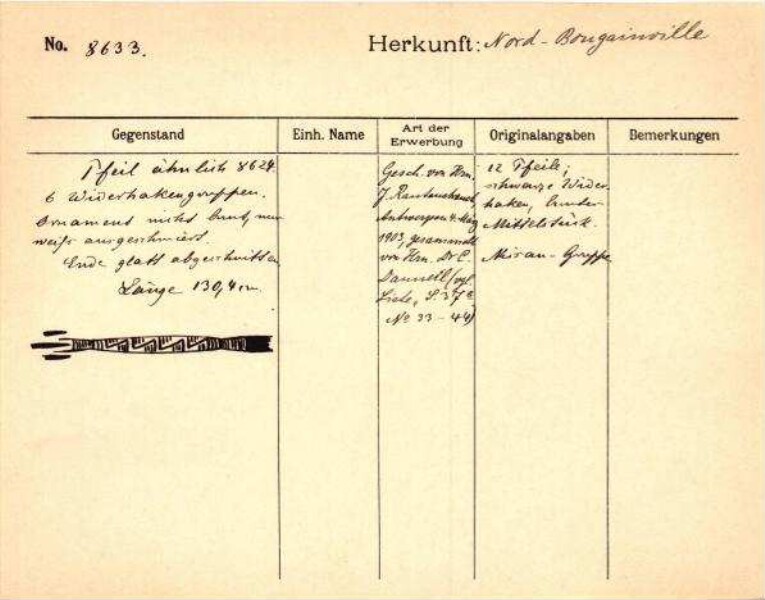 No. 8633.
Herkunft: Nord-Bougainville
Gegenstand
Pfeil ähnlich 8624.
6 Widerhakengruppen.
Ornament nicht bunt, nur
weiß ausgeschmiert.
Ende glatt abgeschnitten
Länge 130,4 cm.
Einh. Name
Art der
Erwerbung
Gesch. von Hrn.
J. Rautenstrauch,
Antwerpen 4. März
1903, gesammelt
von Hrn. Dr C.
Danneil (vgl.
Liste, S. 37
No 33-44)
Originalangaben
12 Pfeile;
schwarze Wider
haken, bunter
Mittelstück.
Gruppe
Bemerkungen